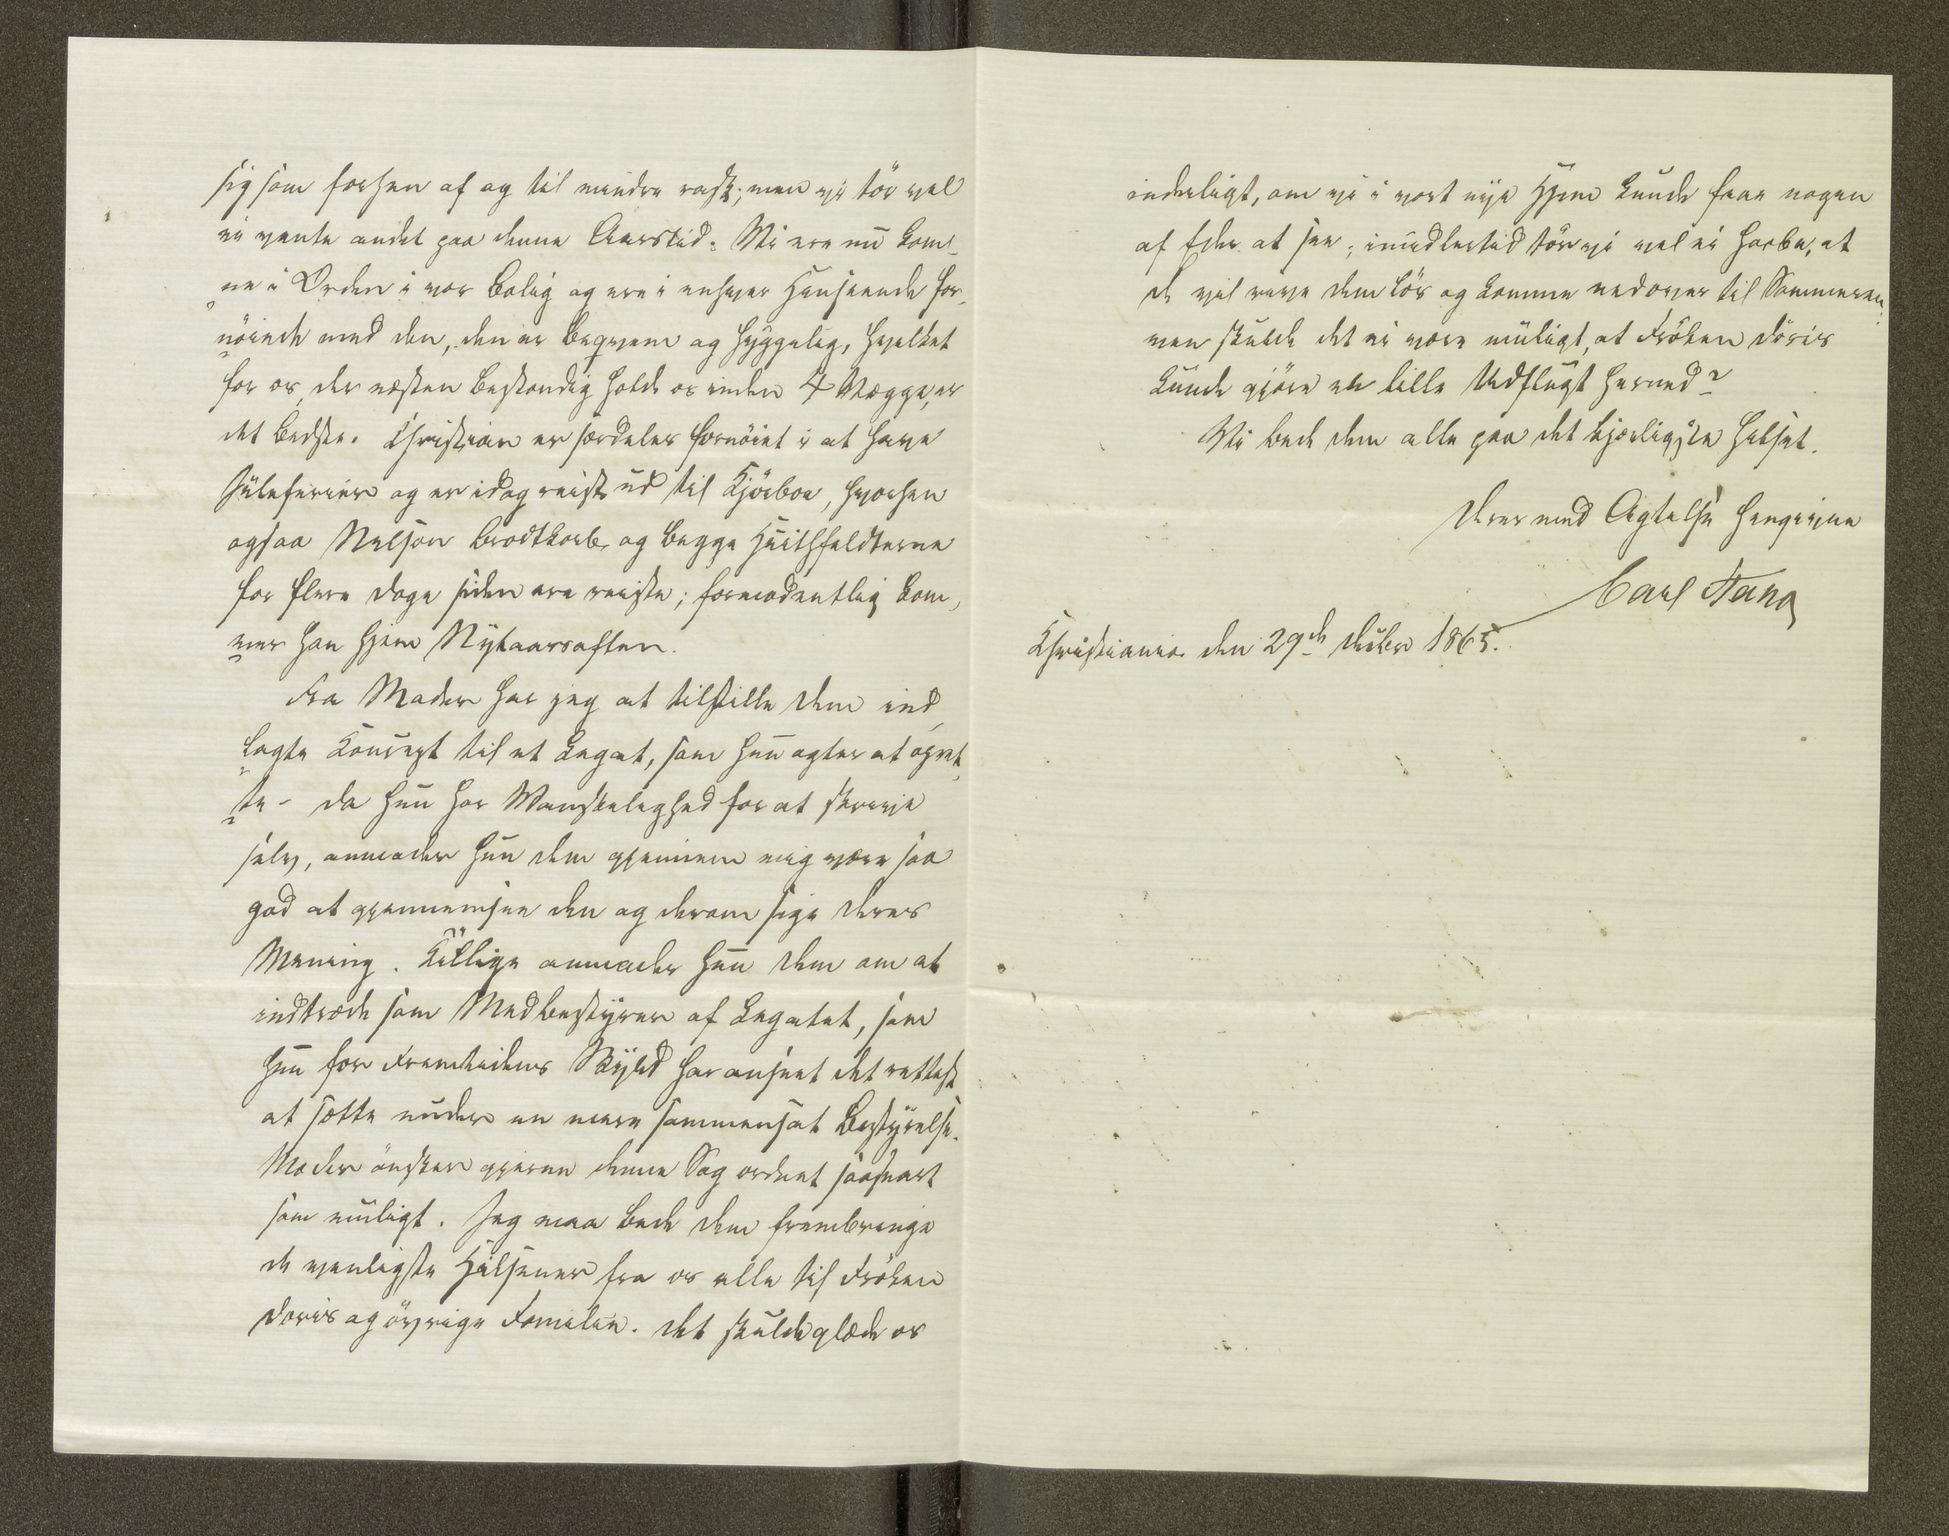 sig som forhen af og til mindre rask; men vi tör vel
ei vente andet paa denne Aarstid. Vi ere nu kom-
ne i Orden i vor Bolig og ere i enhver Henseende for-
nöiede med den, den er beqvem og hyggelig, hvilket
for os, der næsten bestandig holde os inden 4 Vægge, er
det bedste. Christian er særdeles fornöiet i at have
Juleferier og er idag reist ud til Kjörboe, hvorhen
ogsaa Nelson Brodtkorb og begge Huitfeldterne
for flere Dage siden ere reiste; formodentlig kom-
mer han hjem Nytaarsaften.
Fra Moder har jeg at tilstille Dem ind-
lagte Koncept til et Legat, som hun agter at opret-
te - da hun har Vanskelighed for at skrive
selv, anmoder hun Dem gjennem mig være saa
god at gjennemsee den og derom sige Deres
Mening. Tillige anmoder hun Dem om at
indtræde som Medbestyrer af Legatet, som
hun for Fremtidens Skyld har anseet det rettest
at sætte under en mere sammensat Bestyrelse.
Moder önsker gjerne denne Sag ordnet saasnart
som muligt. Jeg maa bede Dem frembringe
de venligste Hilsener fra os alle til Fröken
Doris og övrige Familie. Det skulde glæde os
inderligt, om vi i vort nye Hjem kunde faae nogen
af Eder at see; imidlertid tör vi vel ei haabe, at
De vil rive Dem lös og komme nedover til Sommeren,
men skulde det ei være muligt, at Fröken Doris
kunde gjöre en lille Udflugt herned?
Vi bede Dem alle paa det kjærligste hilset.
Deres med Agtelse hengivne
Carl Stang
Christiania den 29de Decbr 1865.